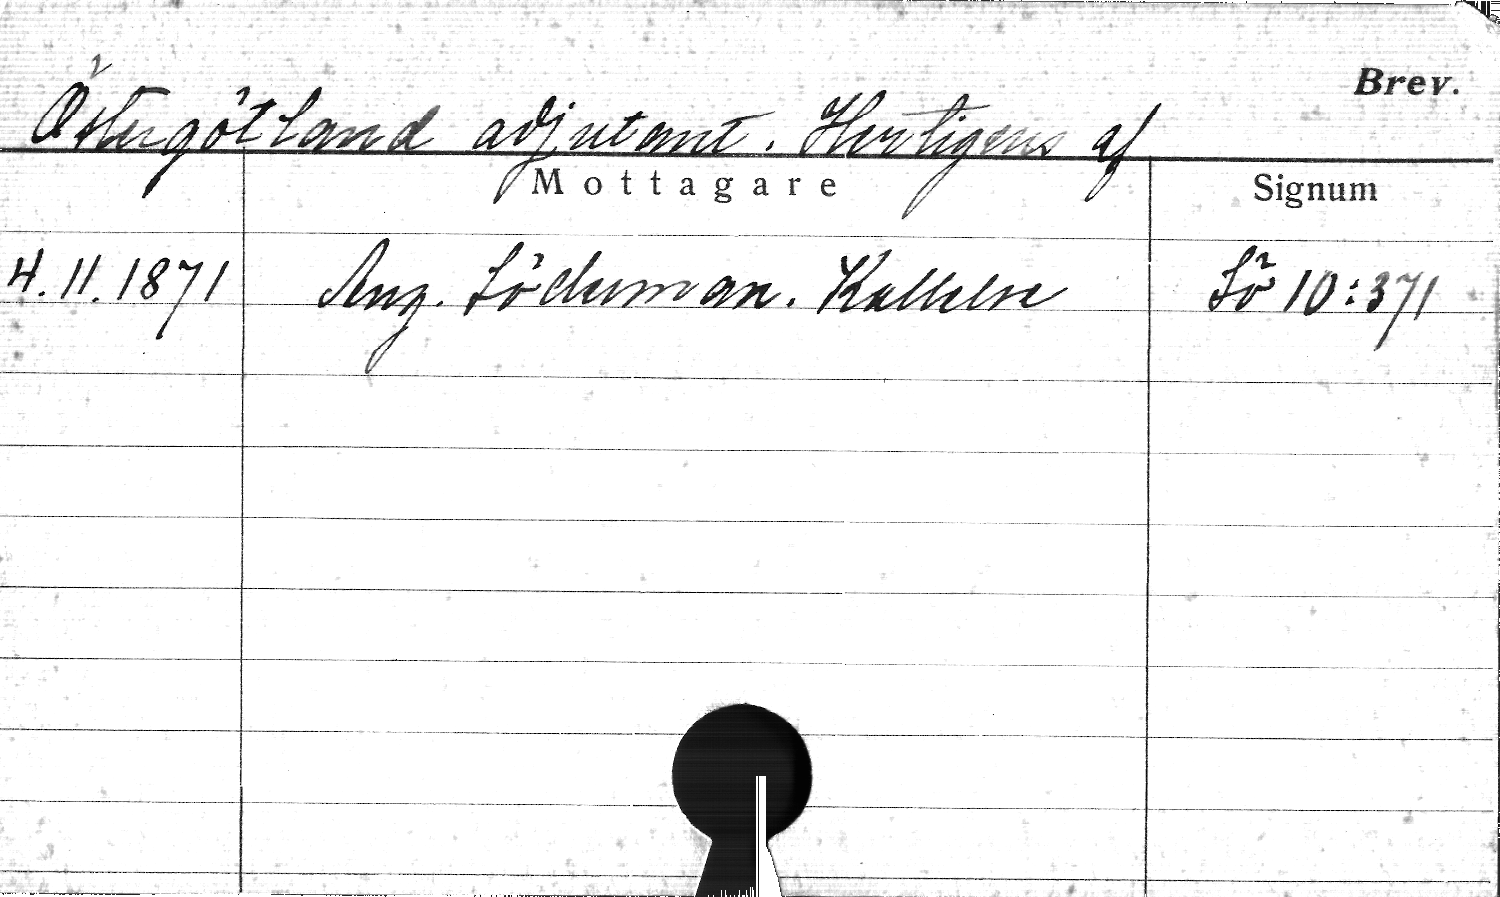 Brev.
Östergötland adjutant. Hertigens af
Mottagare Signum
4.11.1871 Aug. Söderman. Kallelse Sö 10:371